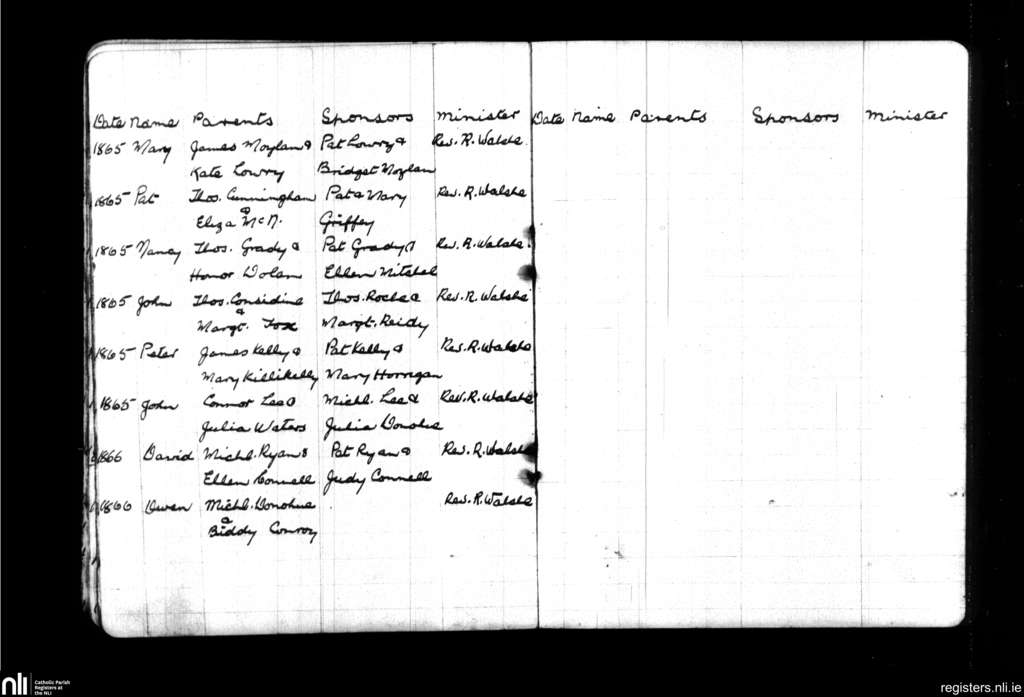 Date Name Parents Sponsors Minister Date Name Parents Sponsors Minister
1865 Mary James Moylan & Pat Lowry & Rev. R. Walshe
Kate Lowry Bridget Moylan
1865 Pat Thos. Cunningham Pat & Mary Rev. R. Walshe
& Eliza McN. Griffey
1865 Nancy Thos. Grady & Pat Grady & Rev. R. Walshe.
Honor Dolan Ellen Mitchel
1865 John Thos. Considine Thos. Roche & Rev. R. Walshe
& Margt. Fox Margt. Reidy
1865 Peter James Kelly & Pat Kelly & Rev. R. Walshe
Mary Killikelly Mary Horrigan
1865 John Connor Lee & Michl. Lee & Rev. R. Walshe
Julia Waters Julia Donohe
1866 David Michl. Ryan & Pat Ryan & Rev. R. Walshe
Ellen Connell Judy Connell
1866 Owen Michl. Donohue Rev. R. Walshe
& Biddy Conroy
nli Catholic Parish
Registers at
the NLI
registers.nli.ie